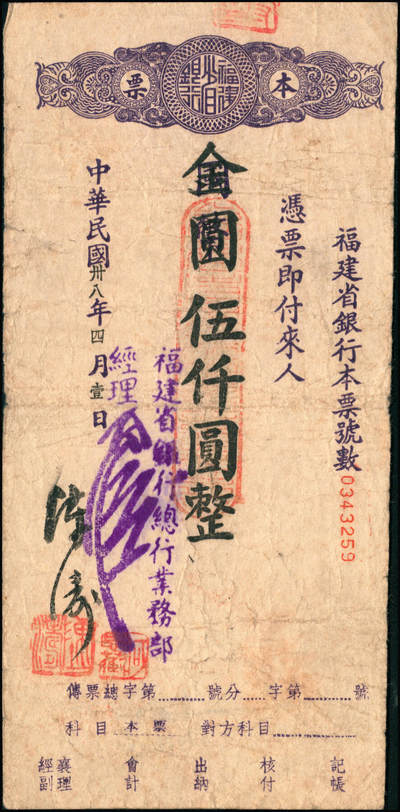 本票
福建省銀行
福建省銀行本票號數0343259
憑票即付來人
金圓伍仟圓整
福建省銀行總行業務部
經理
中華民國卅八年四月壹日
傳票總字第 號分 字第 號
科目本票 對方科目
記帳
核付
出納
會計
襄理
經副